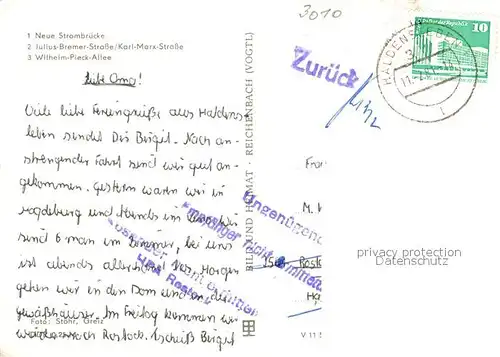 3010
1 Neue Strombrücke
2 Julius-Bremer-Straße/Karl-Marx-Straße
3 Wilhelm-Pieck-Allee
Liebe Oma!
Viele liebe Feriengrüße aus Haldens-
leben sendet Dir Birgit. Nach an-
strengender Fahrt sind wir gut an-
gekommen. Gestern waren wir in
Magdeburg und Abends im
sind 6 man im Zimmer, bei uns
ist abends allerhand los. Morgen
gehen wir in den Dom und in die
gewäßhäuser. Im Freitag kommen wir
wieder nach Rostock. Tschüß Birgit
Foto: Stöhr, Greiz
BILD UND HEIMAT · REICHENBACH (VOGTL)
Zurück
10
HALDENSLEBEN
Ungenügend
Empfänger nicht zu ermitteln
Fra
M.
Rost
V 11
privacy protection
Datenschutz